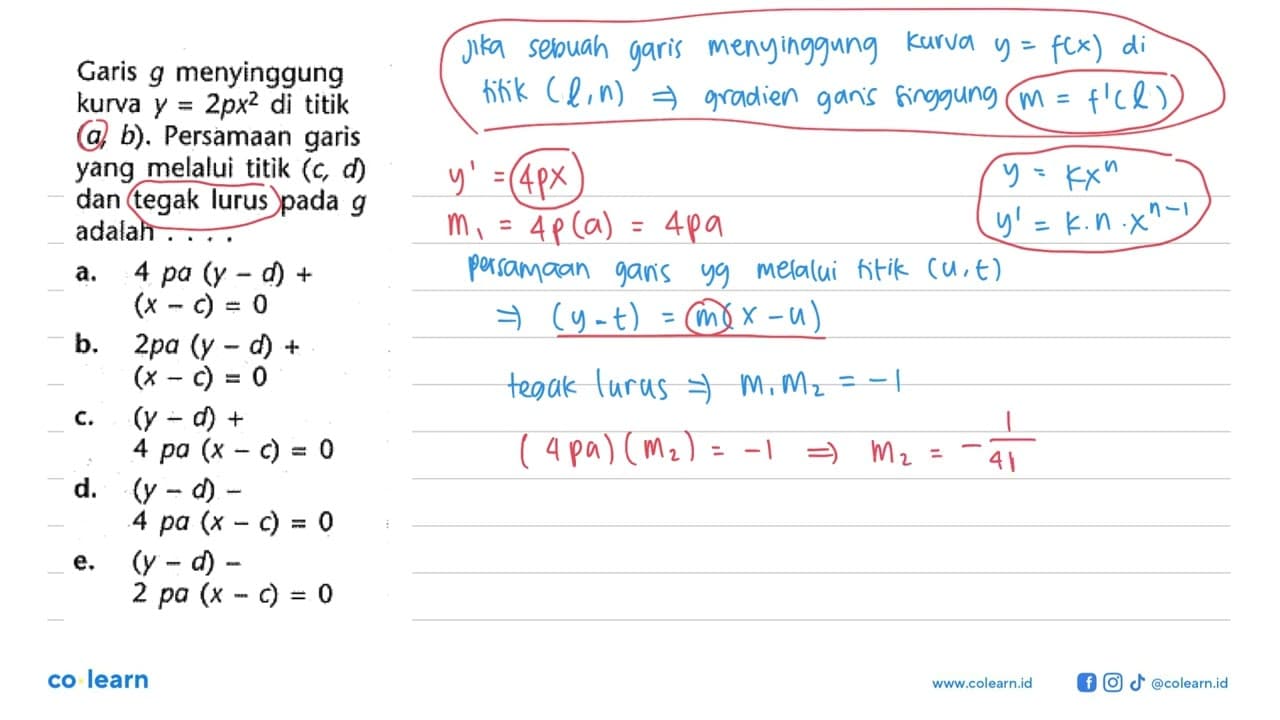 Garis g menyinggung
kurva y = 2px² di titik
(a, b). Persamaan garis
yang melalui titik (c, d)
dan tegak lurus pada g
adalah . . . .
a. 4 pa (y – d) +
(x – c) = 0
b. 2pa (y – d) +
(x – c) = 0
c. (y – d) +
4 pa (x – c) = 0
d. (y – d) –
4 pa (x – c) = 0
e. (y – d) –
2 pa (x – c) = 0
jika sebuah garis menyinggung kurva y = f(x) di
titik (l, n) ⇒ gradien garis singgung m = f'(l)
y' = 4px
m₁ = 4p(a) = 4pa
y = kxⁿ
y' = k.n.xⁿ⁻¹
persamaan garis yg melalui titik (u,t)
⇒ (y-t) = m(x-u)
tegak lurus ⇒ m₁m₂ = -1
(4pa)(m₂) = -1 ⇒ m₂ = - 1/41
co learn
www.colearn.id
@colearn.id